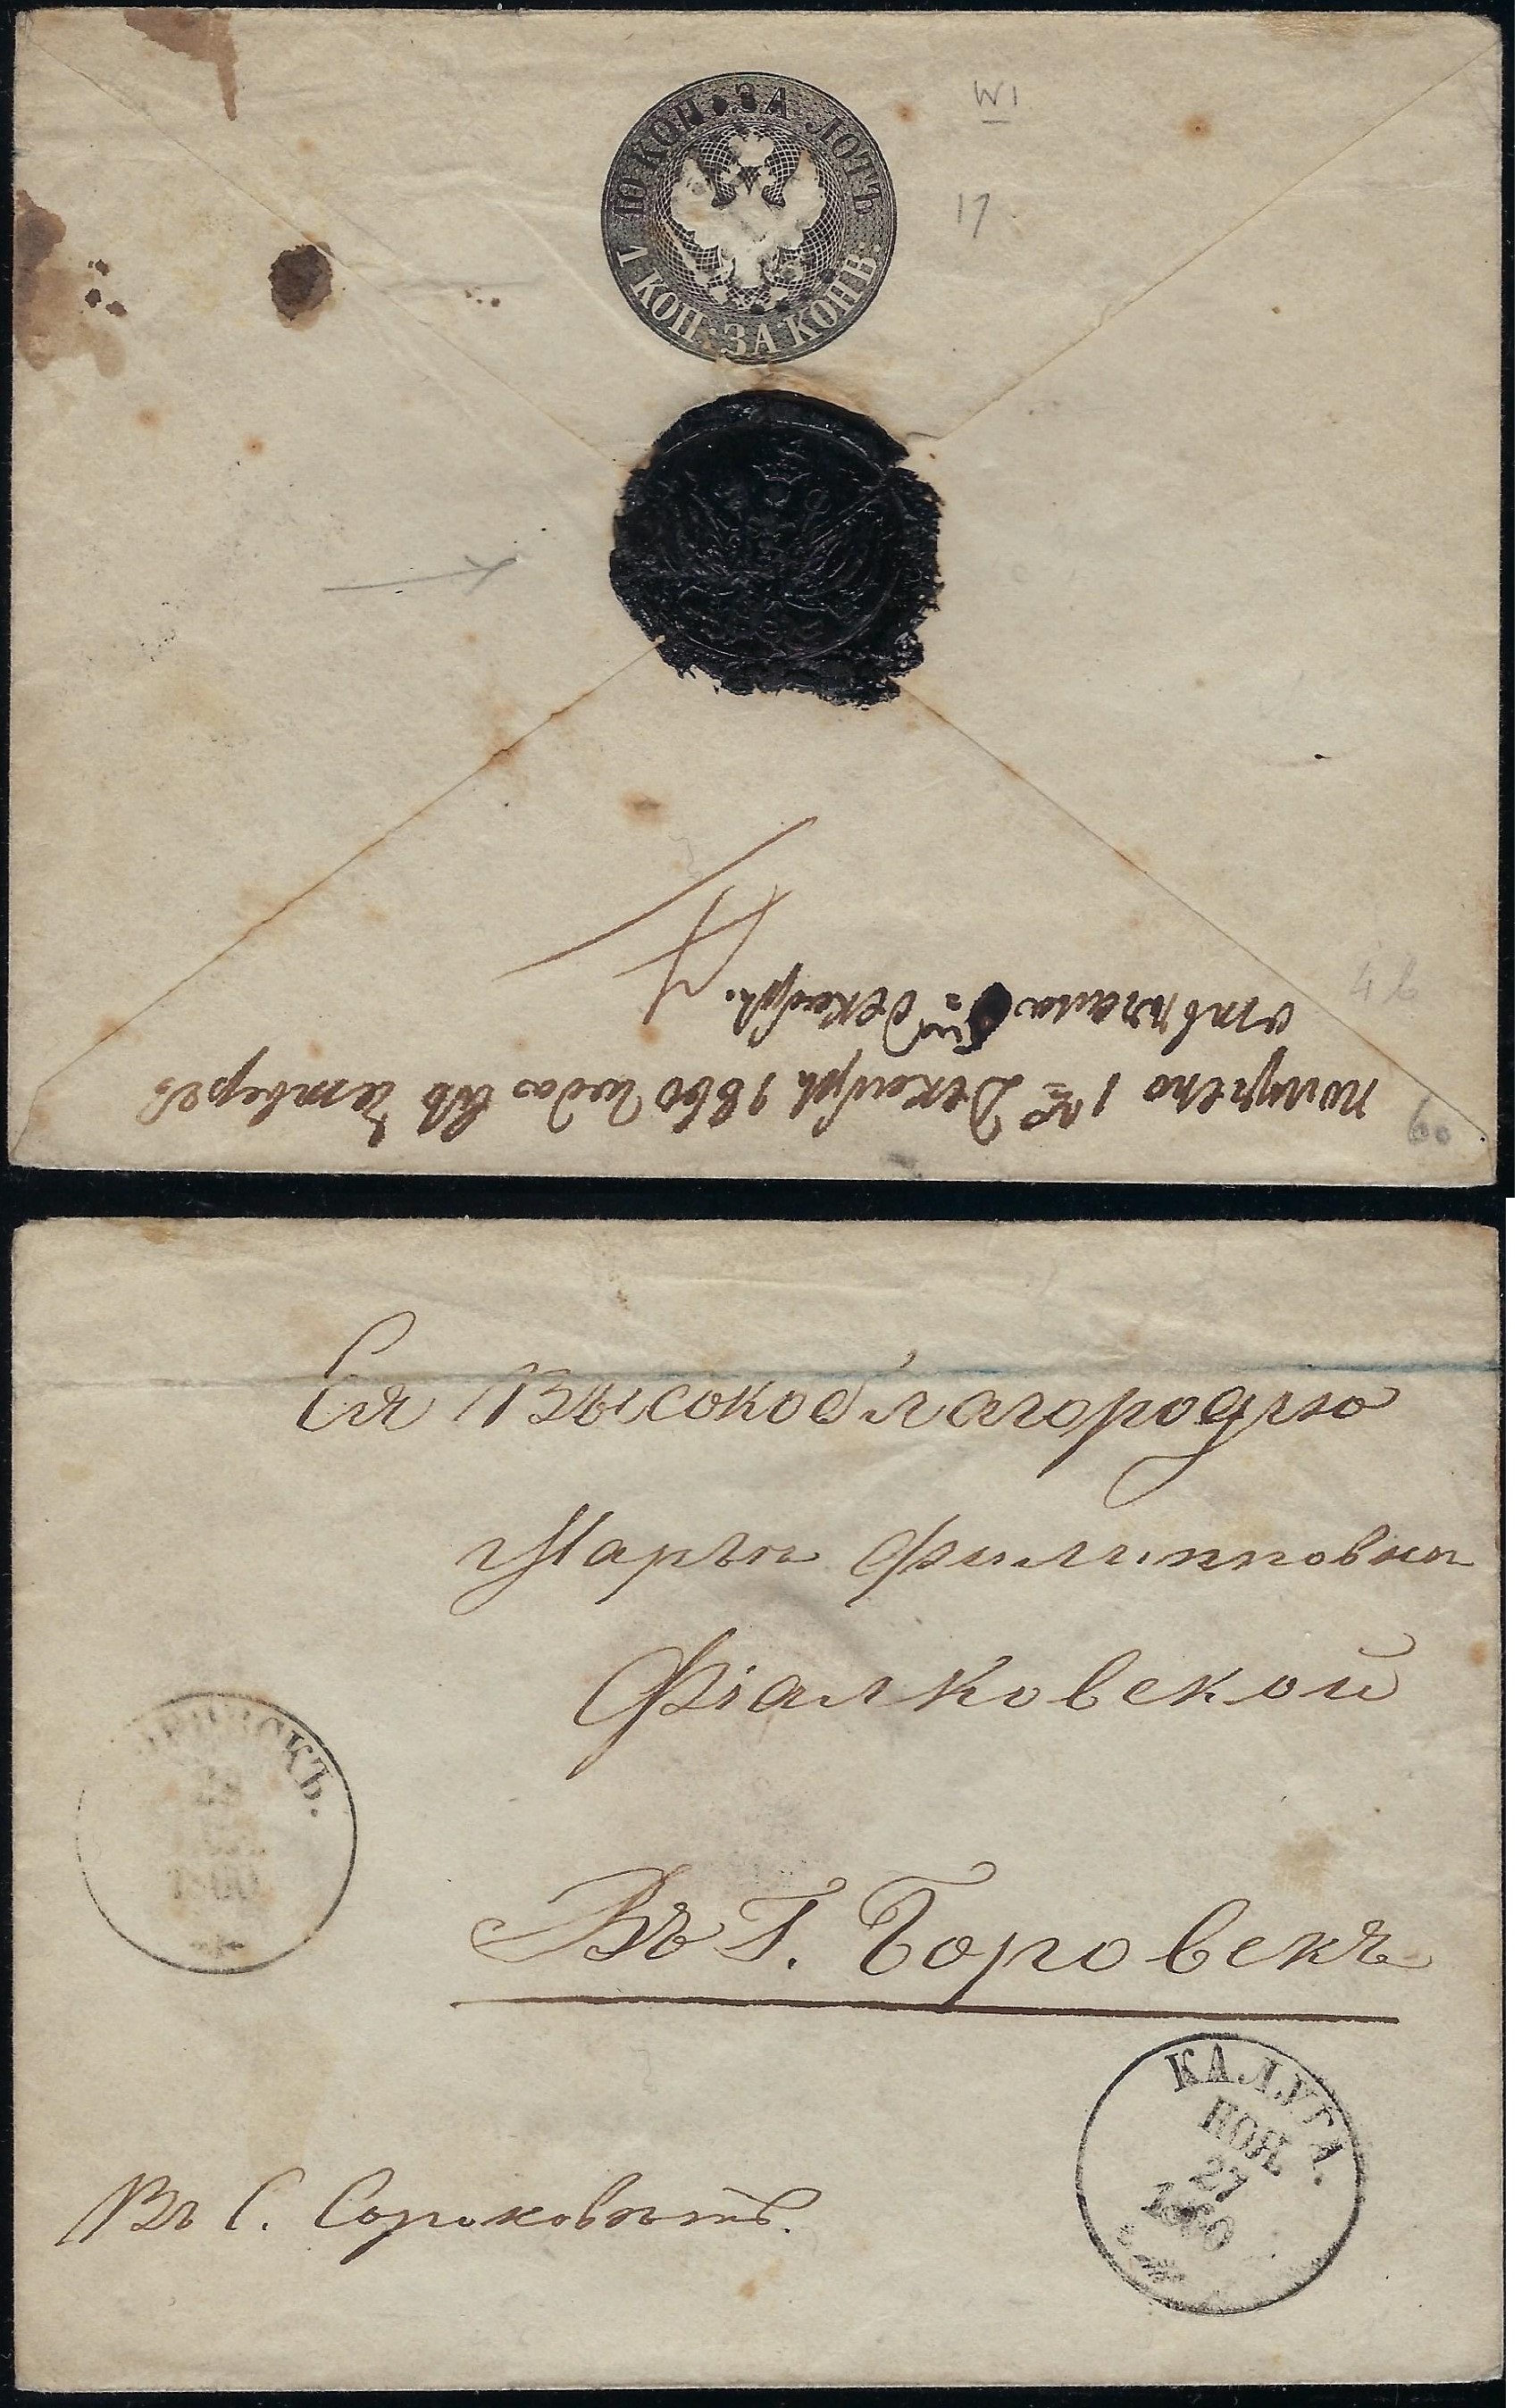 10 КОП. ЗА ЛОТЪ
1 КОП. ЗА КОНВ.
W1
17
46
60
получено 1го Декабря 1860 года въ четвергъ
отвѣчала 5го декабря.
Ея Высокоблагородію
Марьи Филипповни
Фіалковской
Въ Г. Боровскъ
28
1860
КАЛУГА.
НОЯ
27
1860
Въ С.